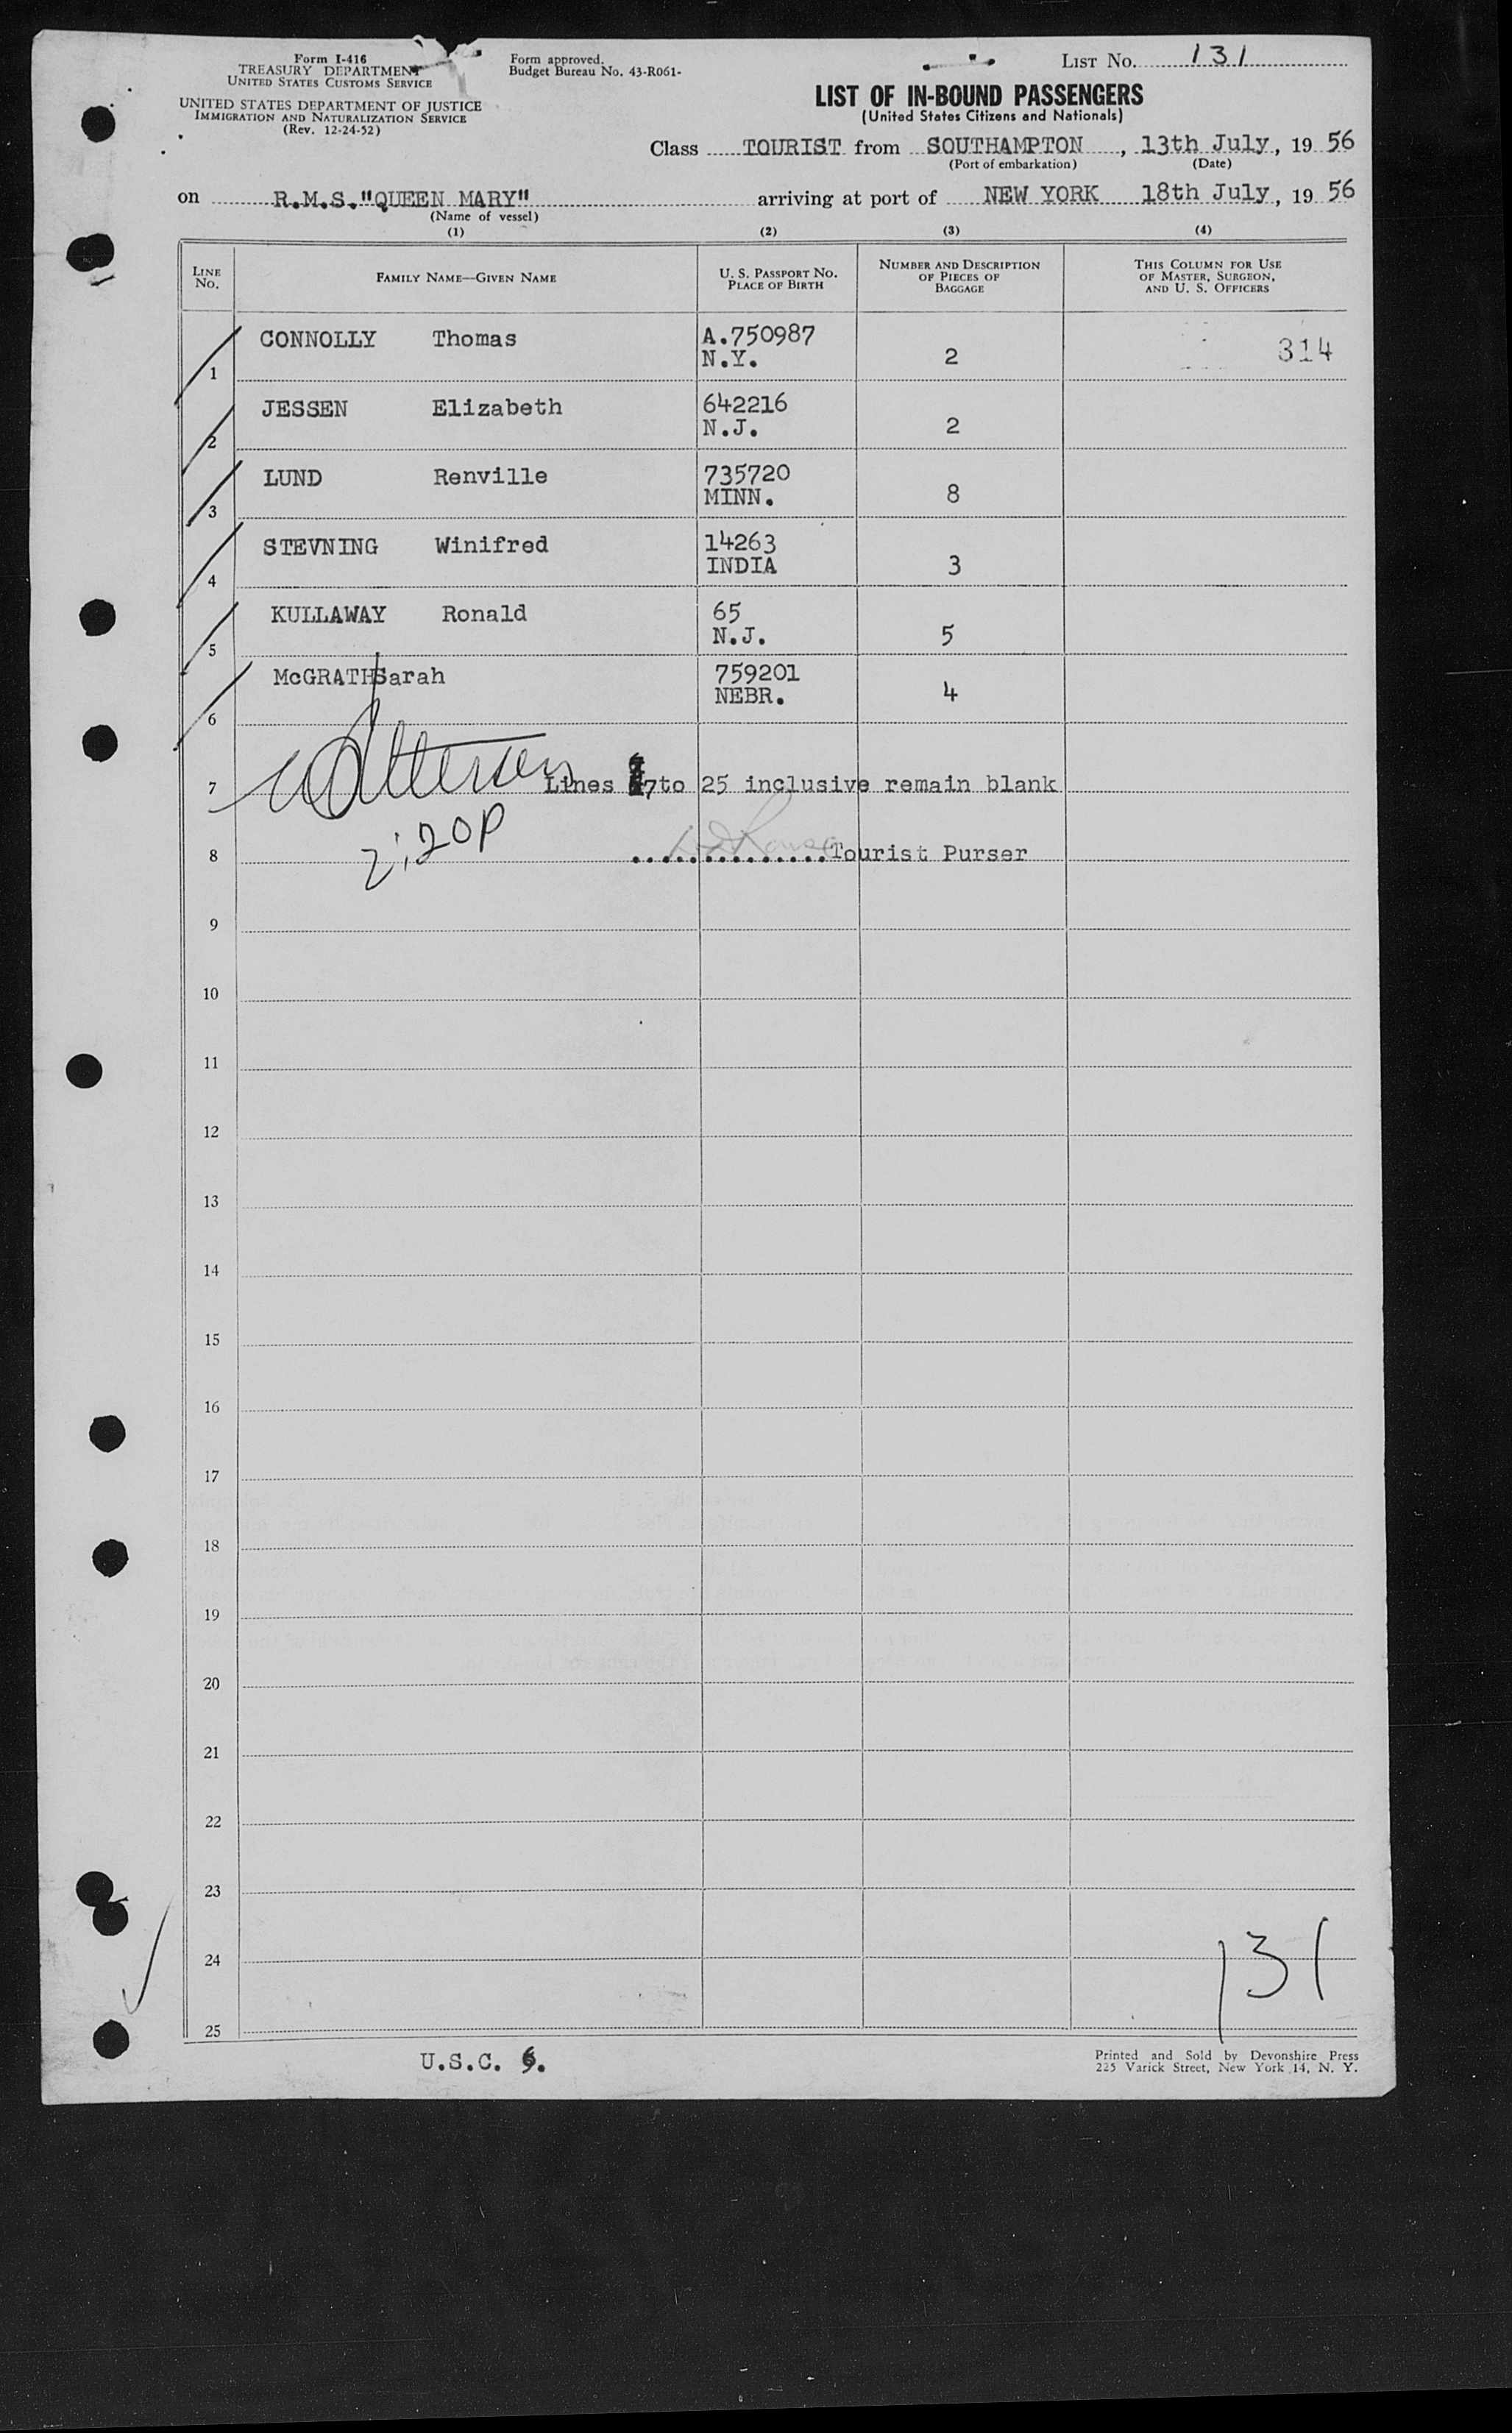 Form I-416
TREASURY DEPARTMENT
UNITED STATES CUSTOMS SERVICE
UNITED STATES DEPARTMENT OF JUSTICE
IMMIGRATION AND NATURALIZATION SERVICE
(Rev. 12-24-52)
Form approved.
Budget Bureau No. 43-R061-
LIST No. 131
LIST OF IN-BOUND PASSENGERS
(United States Citizens and Nationals)
Class TOURIST from SOUTHAMPTON, 13th July, 19 56
(Port of embarkation) (Date)
on R.M.S."QUEEN MARY" arriving at port of NEW YORK 18th July, 19 56
(Name of vessel)
(1) (2) (3) (4)
LINE No. FAMILY NAME—GIVEN NAME U. S. PASSPORT No. PLACE OF BIRTH NUMBER AND DESCRIPTION OF PIECES OF BAGGAGE THIS COLUMN FOR USE OF MASTER, SURGEON, AND U. S. OFFICERS
1 CONNOLLY Thomas A.750987 N.Y. 2 314
2 JESSEN Elizabeth 642216 N.J. 2
3 LUND Renville 735720 MINN. 8
4 STEVNING Winifred 14263 INDIA 3
5 KULLAWAY Ronald 65 N.J. 5
6 McGRATH Sarah 759201 NEBR. 4
7 Lines 7 to 25 inclusive remain blank
2:20P
8 ..............Tourist Purser
9
10
11
12
13
14
15
16
17
18
19
20
21
22
23
24
131
25
U.S.C. 6.
Printed and Sold by Devonshire Press
225 Varick Street, New York 14, N. Y.